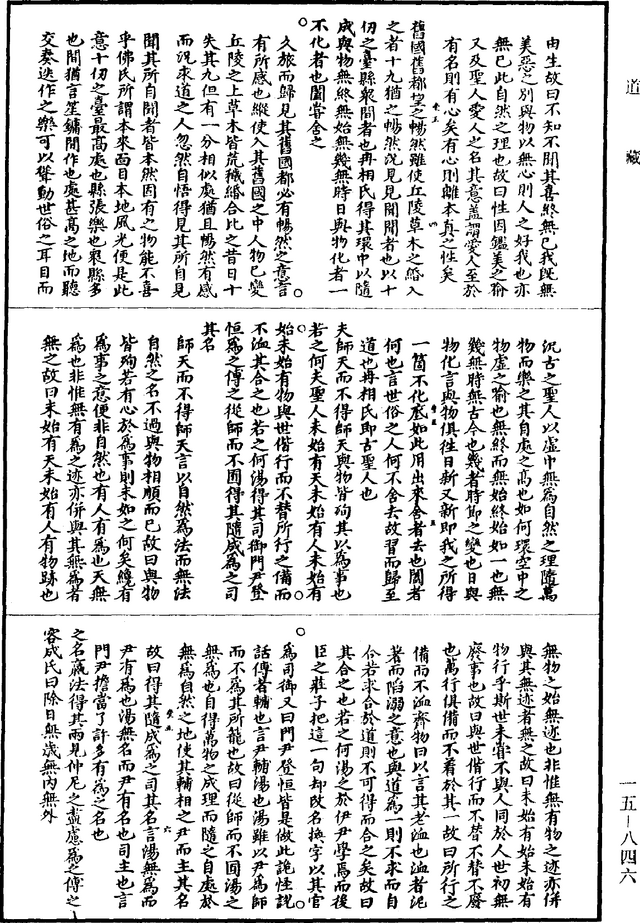 道藏
由生故曰不知不聞其喜終無已我既無
美惡之別與物以無心則人之好我也亦
無已此自然之理也故曰性因鑑美之喻
又及聖人愛人之名其意蓋謂愛人至於
有名則有心矣有心則離本真之性矣
舊國舊都望之暢然雖使丘陵草木之緡入
之者十九猶之暢然況見見聞聞者也以十
仞之臺縣衆間者也冉相氏得其環中以隨
成與物無終無始無幾無時日與物化者一
不化者也闔嘗舍之
久旅而歸見其舊國都必有暢然之意言
有所感也縱使入其舊國之中人物已變
丘陵之上草木皆荒穢緡合比之昔日十
失其九但有一分相似處猶且暢然有感
而況求道之人忽然自悟得見其所自見
聞其所自聞者皆本然固有之物能不喜
乎佛氏所謂本來面目本地風光便是此
意十仞之臺最高處也縣張樂也衆縣多
也間猶言笙鏞間作也處甚高之地而聽
交奏迭作之樂可以聳動世俗之耳目而
況古之聖人以虛中無為自然之理隨萬
物而樂之其自處之高也如何環空中之
物虛之喻也無終而無始終始如一也無
幾無時無古今也幾者時節之變也日與
物化言與物俱往日新又新即我之所得
一箇不化底如此用出來舍者去也闔者
何也言世俗之人何不舍去故習而歸至
道也冉相氏即古聖人也
夫師天而不得師天與物皆殉其以為事也
若之何夫聖人未始有天未始有人未始有
始未始有物與世偕行而不替所行之備而
不洫其合之也若之何湯得其司御門尹登
恒為之傅之從師而不囿得其隨成為之司
其名
師天而不得師天言以自然為法而無法
自然之名不過與物相順而已故曰與物
皆殉若有心於為事則未如之何矣纔有
為事之意便非自然也有人有為也天無
為也非惟無有為之迹亦併與其無為者
無之故曰未始有天未始有人有物跡也
無物之始無迹也非惟無有物之迹亦併
與其無迹者無之故曰未始有始未始有
物行乎斯世未嘗不與人同於人世初無
廢事也故曰與世偕行而不替不替不廢
也萬行俱備而不着於其一故曰所行之
備而不洫齊物曰以言其老洫也洫者泥
著而陷溺之意也與道為一則不求而自
合若求合於道則不可得而合之矣故曰
其合之也若之何湯之於伊尹學焉而後
臣之莊子把這一句却改名換字以其官
為司御又曰門尹登恒皆是做此詭怪說
話傅者輔也言尹輔湯也湯雖以尹為師
而不為其所籠也故曰從師而不囿湯之
無為也自得萬物之成理而隨之自處於
無為自然之地使其輔相之尹而主其名
故曰得其隨成為之司其名言湯無為而
尹有為也湯無名而尹有名也司主也言
門尹擔當了許多有為之名也
之名嬴法得其兩見仲尼之盡慮為之傅之
容成氏曰除日無歲無內無外
一五－八四六